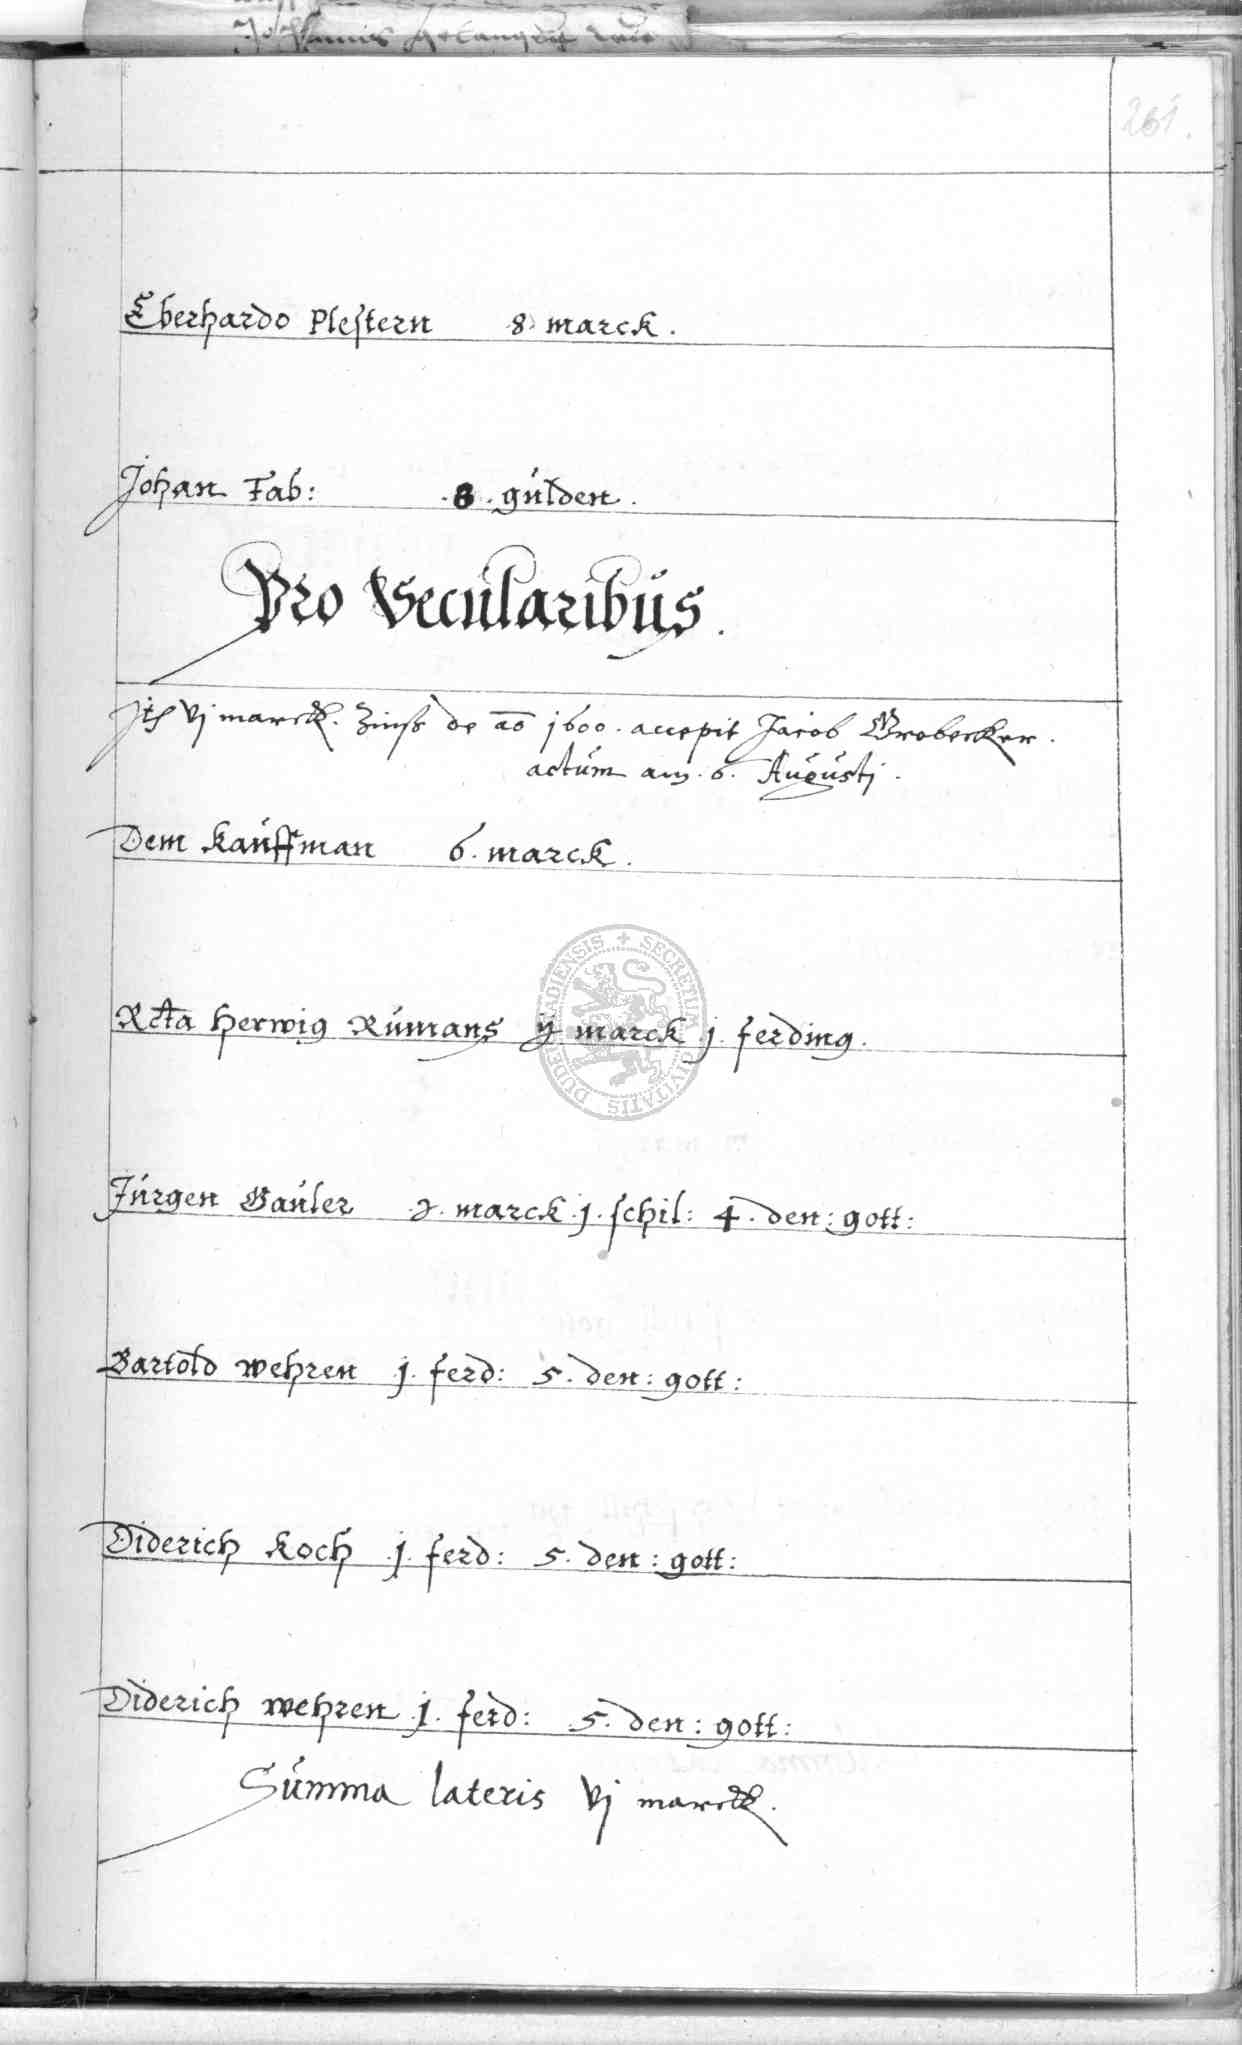 261.
Eberhardo Plestern 8 marck.
Johan Fab: 8. gulden.
Pro Secularibus.
vj marck. Zinß de ao 1600. accepit Jacob Grobecker.
actum am. 6. Augustj.
Dem Kauffman 6. marck.
Herwig Rumans ij marck j. ferding.
Jurgen Gauler 2. marck .j. schil: 4. den: gott:
Bartold wehren .j. ferd: 5. den: gott:
Diderich Koch .j. ferd: 5. den: gott:
Diderich wehren .j. ferd: 5. den: gott:
Summa lateris vj marck.
SECRETUM CIVITATIS